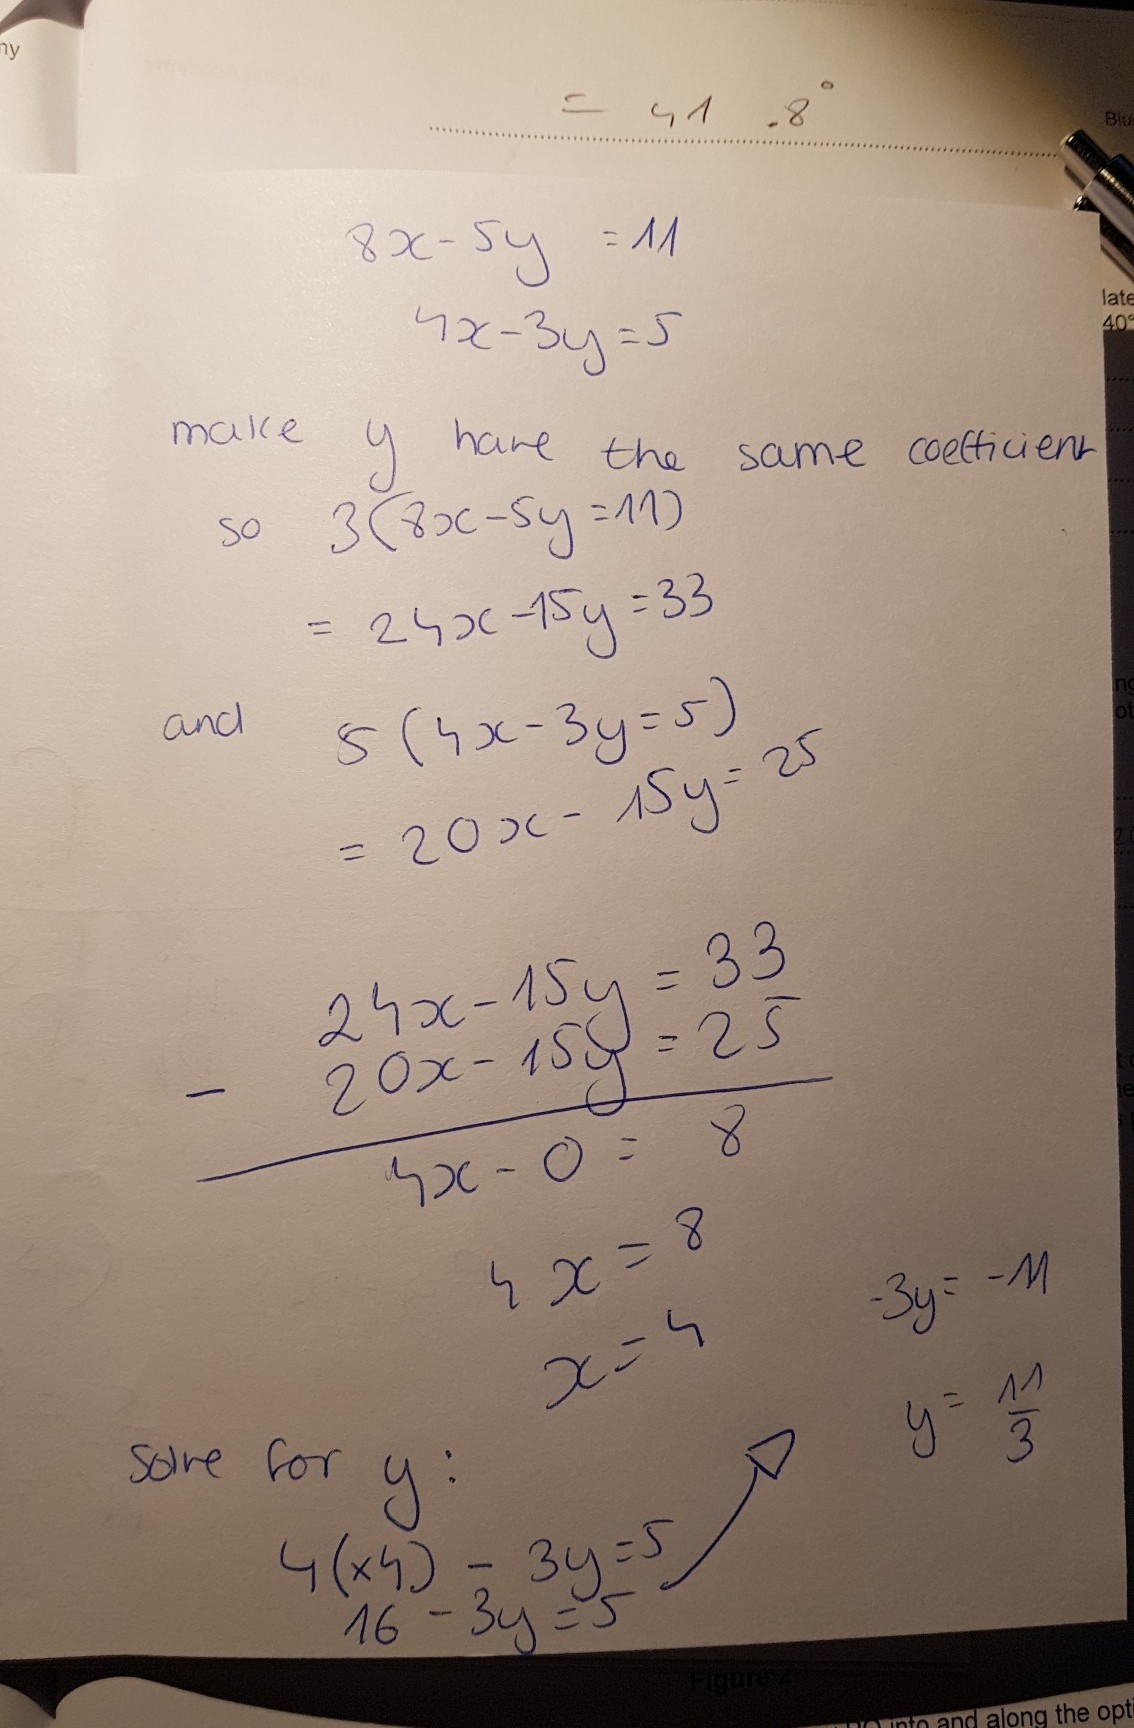 ny
= 41.8°
Blu
8x-5y = 11
4x-3y=5
late
40°
make y have the same coefficient
so 3(8x-5y=11)
= 24x-15y=33
and 5(4x-3y=5)
= 20x-15y=25
24x-15y=33
- 20x-15y=25
4x-0= 8
4x=8
x=4
solve for y:
4(×4) - 3y=5
16-3y=5
-3y=-11
y= 11/3
Figure 2
into and along the opti